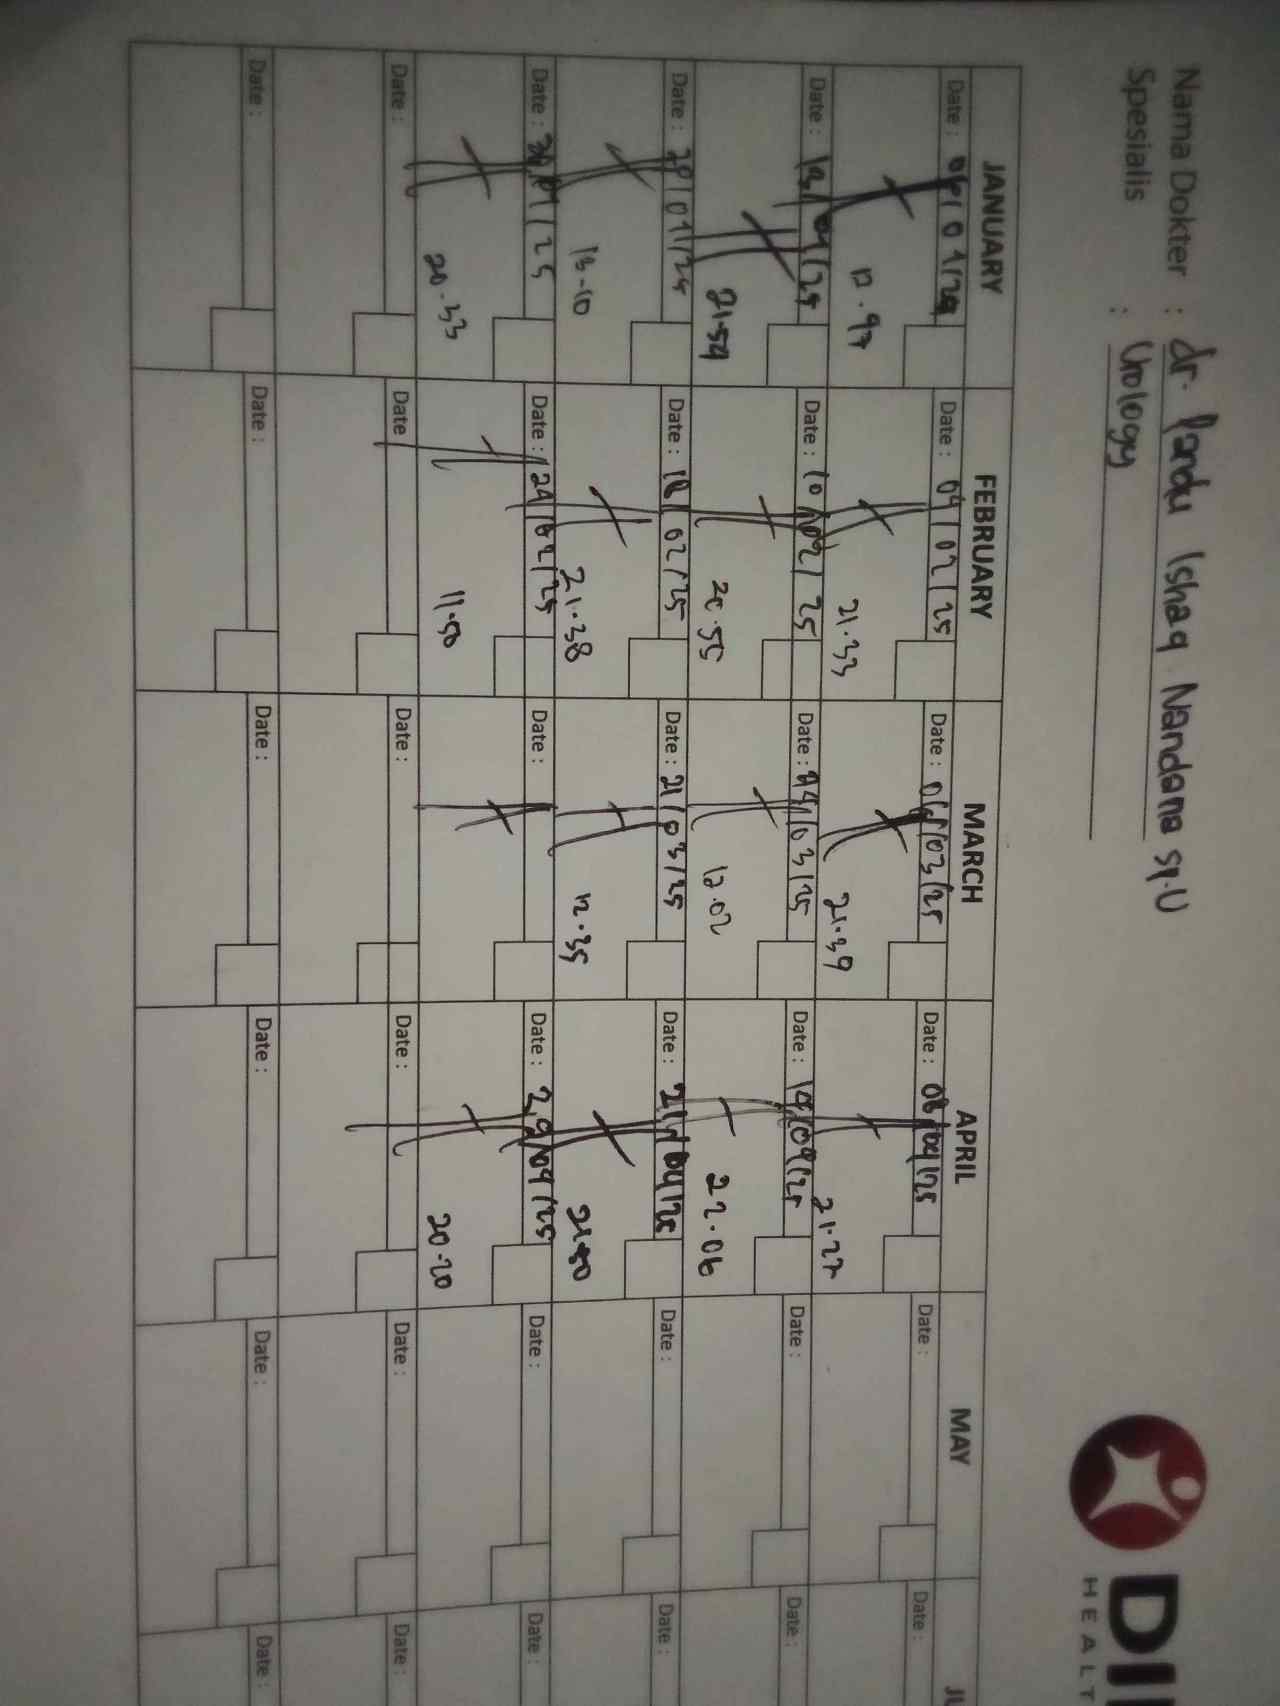 Nama Dokter : dr. Pandu Ishaq Nandana sp.U
Spesialis : Urology
DI
HEALT
JANUARY FEBRUARY MARCH APRIL MAY JU
Date : 06/01/25 Date : 04/02/25 Date : 06/03/25 Date : 08/04/25 Date : Date :
21.33 21.39 21.27
Date : 13/01/25 Date : 10/02/25 Date : 14/03/25 Date : 14/04/25 Date : Date :
21.54 20.55 12.02 22.06
Date : 20/01/25 Date : 18/02/25 Date : 21/03/25 Date : 21/04/25 Date : Date :
13-10 21.38 12.35 21.50
Date : /01/25 Date : 24/02/25 Date : Date : 29/04/25 Date : Date :
20.33 11.50 20.20
Date : Date Date : Date : Date : Date :
Date : Date : Date : Date : Date : Date :